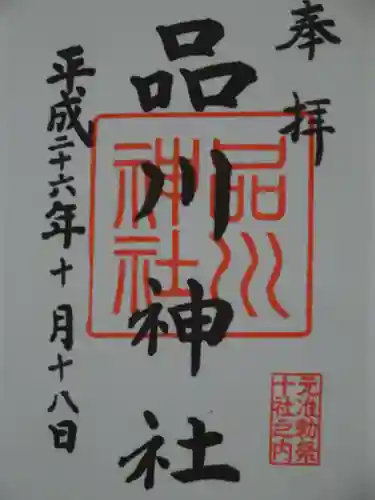 奉拝
品川神社
平成二十六年十月十八日
品川
神社
元准勅祭
十社之内